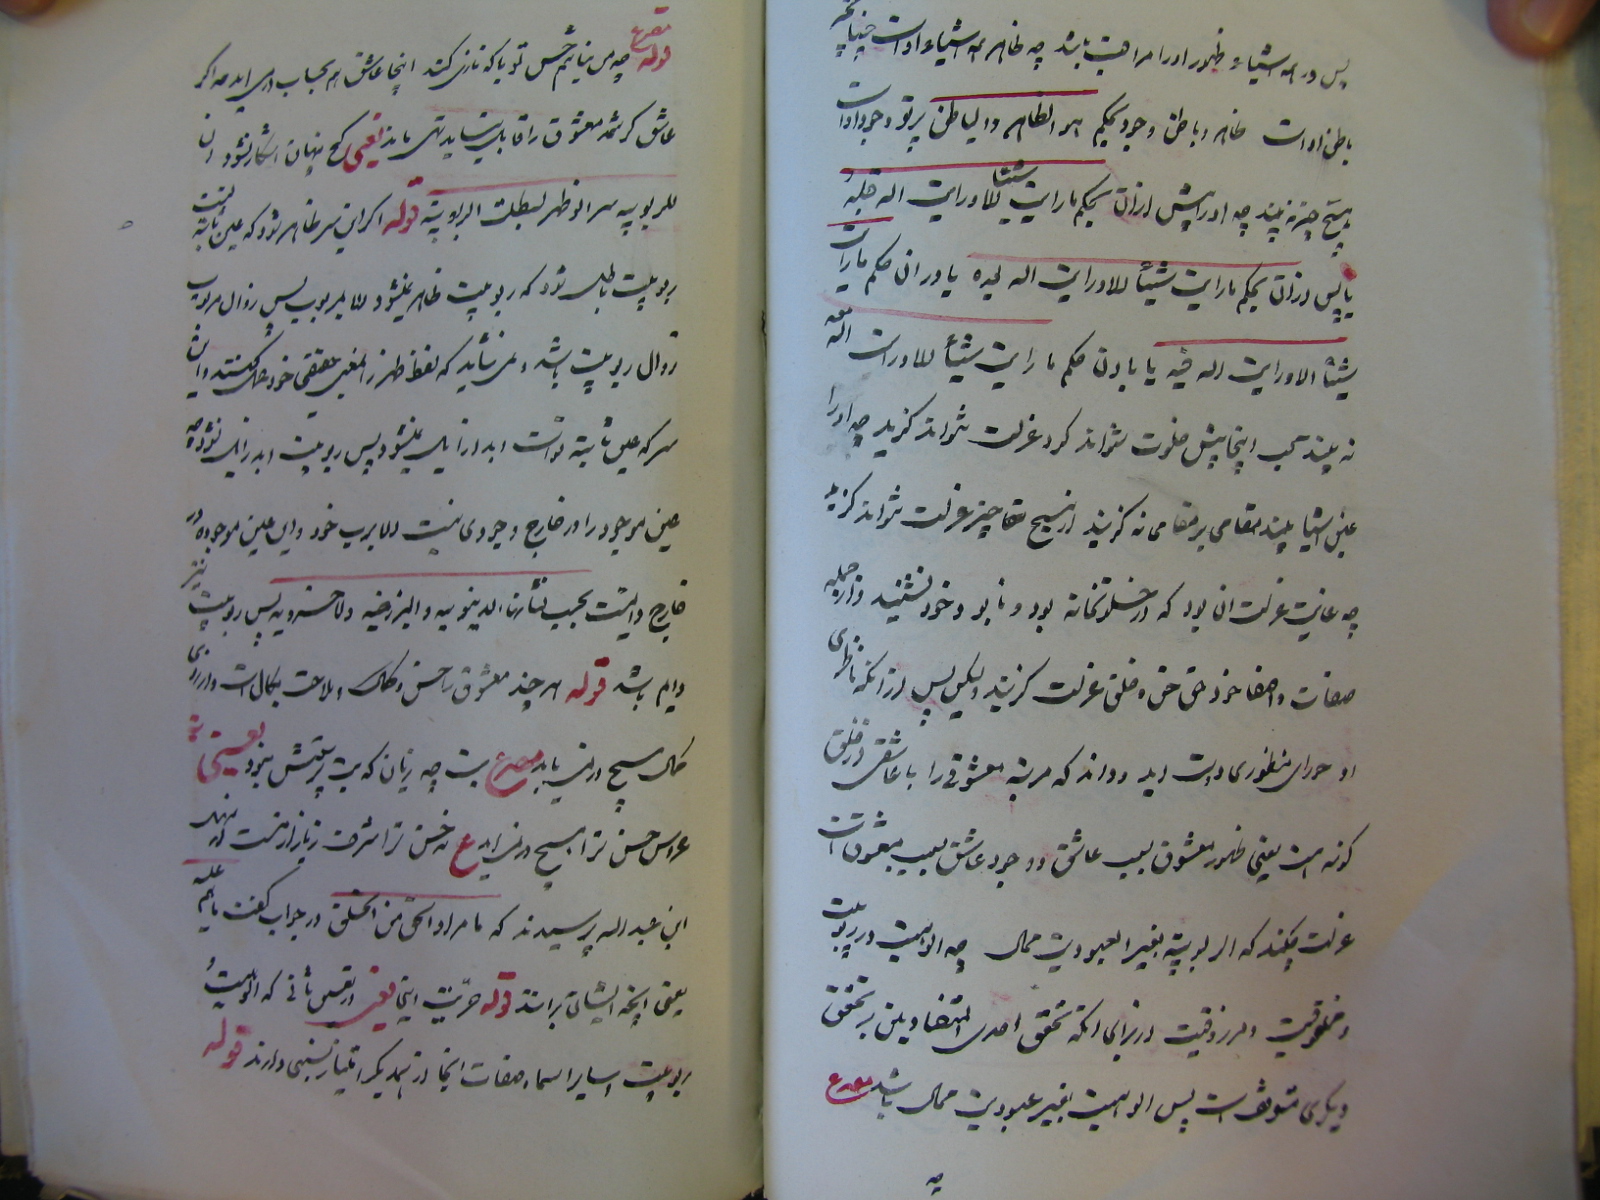 پس در همه اشیاء ظهور او را مراقب باشد چه ظاهر همه اشیاء اوست چنانچه
باطن اوست ظاهر و باطن وجود بحکم هو الظاهر والباطن پرتو وجود اوست
هیچ چیز نه بیند چه او را پیش ازان بحکم ما رایت شیئا الا ورایت الله قبله و
یا پس ازان بحکم ما رایت شیئا الا ورایت الله بعده یا دران حکم ما رایت
شیئا الا ورایت الله فیه یا با آن حکم ما رایت شیئا الا ورایت الله معه
نه بیند محب اینجا پیش خلوت نتواند کرد عزلت نتواند گزید چه او را
عین اشیا بیند مقامی بر مقامی نه گزیند از هیچ چیز عزلت نتواند گزید
چه غایت عزلت ان بود که در خلوتخانه بود و نابود خود نشیند واز جمله
صفات و خود حق و خلق عزلت گزیند ولیکن پس ازانکه ناظری
او منظوری دوست اید و داند که مرتبه معشوقی را با عاشقی
کونه است یعنی ظهور معشوق بسبب عاشق و وجود عاشق بسبب معشوق است
عزلت چکند که الربوبیة بغیر العبودیت محال چه الوهیت و ربوبیت
و مخلوقیت و مرزوقیت زیرا انکه تحقق احدی المتضایفین بر تحقق
دیگری متوقف است پس الوهیت بغیر عبودیت محال باشد مصرع
چه
مصرع قوله چه من نباشم حسن تو با که ناز کند اینجا عاشق هم بحساب درمی اید چه اگر
عاشق کرشمه معشوق را قابل نیاید تهی ماند یعنی گنج پنهان اشکار نشود ان
للربوبیه سر لو ظهر لبطلت الربوبیة قوله اگر این سر ظاهر شود که عین ثابته
ربوبیت باطل شود که ربوبیت ظاهر نمیشود الا بمربوب پس زوال مربوب
زوال ربوبیت باشد و می شاید که لفظ ظهر را بمعنی حقیقی خود
سر که عین ثابته تست ابدا زایل نمیشود پس ربوبیت ابد زایل نشود چه
عین موجود را در خارج وجودی نیست الا برب خود و این عین موجوده در
خارج دایمست بحسب نشأتها الدنیویه والبرزخیه والاخرویه پس ربوبیت نیز
دایم باشد قوله هر چند معشوق را حسن و ملاحت بکمال است و از روی
کمال هیچ درنمی یابد مصرع بت چه زیان که بت پرستش نبود یعنی
عروس حسن ترا هیچ درنمی اید ع نه حسن ترا شرف ز بازار منست
ابن عبد الله پرسیدند که ما مراد الحق من الخلق در جواب گفت ما هم علیه
یعنی انچه ایشان برانند قوله حریت اینجا یعنی ازین نفس ثانی که الوهیت و
ربوبیت و سایر اسما و صفات اینجا از یکدیگر امتیاز نسبی دارند قوله